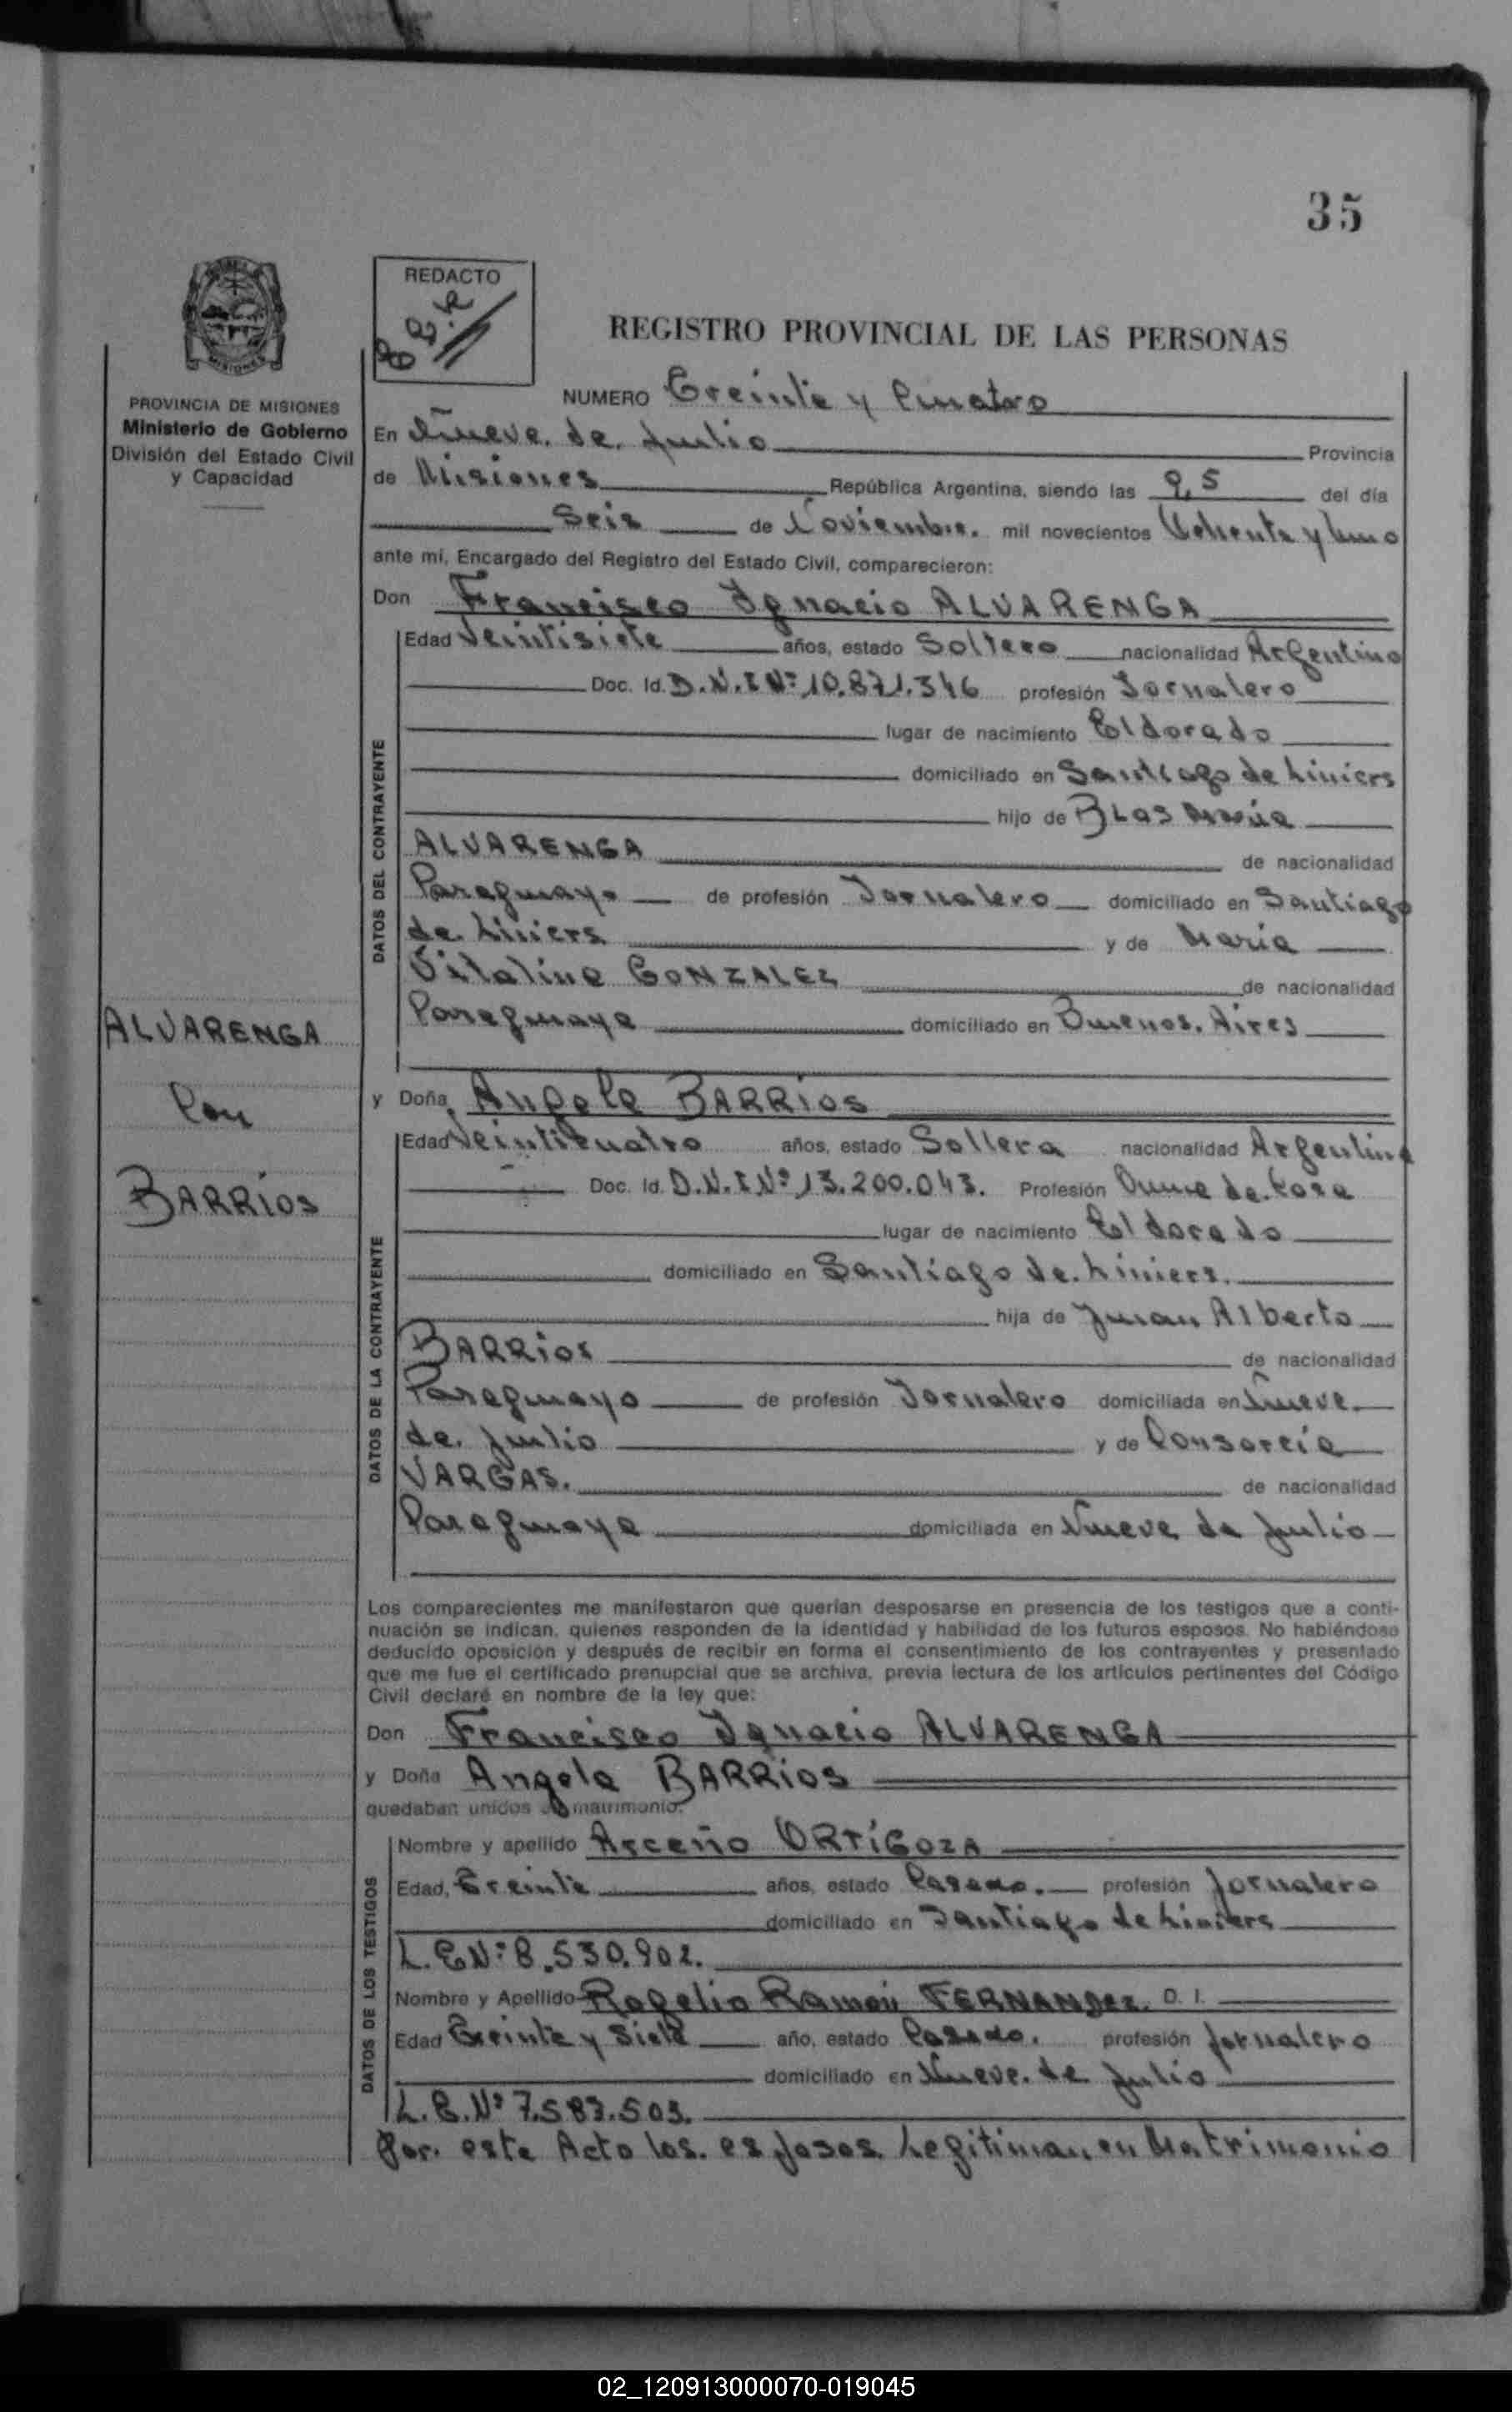 35
REDACTO
REGISTRO PROVINCIAL DE LAS PERSONAS
PROVINCIA DE MISIONES
Ministerio de Gobierno
División del Estado Civil
y Capacidad
NUMERO Treinta y Cuatro
En Nueve de Julio Provincia
de Misiones República Argentina, siendo las 9,5 del día
Seis de Noviembre. mil novecientos Ochenta y Uno
ante mí, Encargado del Registro del Estado Civil, comparecieron:
Don Francisco Ignacio ALVARENGA
Edad Veintisiete años, estado Soltero nacionalidad Argentino
Doc. Id. D.N.I Nº 10.871.346 profesión Jornalero
lugar de nacimiento Eldorado
domiciliado en Santiago de Liniers
hijo de BLas María
ALVARENGA de nacionalidad
Paraguayo de profesión Jornalero domiciliado en Santiago
de Liniers y de María
Vitalina GONZALEZ de nacionalidad
Paraguaya domiciliado en Buenos Aires
DATOS DEL CONTRAYENTE
ALVARENGA
Con
BARRios
y Doña Angela BARRios
Edad Veinticuatro años, estado Soltera nacionalidad Argentina
Doc. Id. D.N.I Nº 13.200.043. Profesión Ama de Casa
lugar de nacimiento Eldorado
domiciliado en Santiago de Liniers.
hija de Juan Alberto
BARRios de nacionalidad
Paraguayo de profesión Jornalero domiciliada en Nueve
de Julio y de Consorcia
VARGAS. de nacionalidad
Paraguaya domiciliada en Nueve de Julio
DATOS DE LA CONTRAYENTE
Los comparecientes me manifestaron que querían desposarse en presencia de los testigos que a conti-
nuación se indican, quienes responden de la identidad y habilidad de los futuros esposos. No habiéndose
deducido oposición y después de recibir en forma el consentimiento de los contrayentes y presentado
que me fue el certificado prenupcial que se archiva, previa lectura de los artículos pertinentes del Código
Civil declaré en nombre de la ley que:
Don Francisco Ignacio ALVARENGA
y Doña Angela BARRios
quedaban unidos en matrimonio.
Nombre y apellido Asceño ORTiGOZA
Edad, Treinta años, estado Casado. profesión Jornalero
domiciliado en Santiago de Liniers
L.E Nº 8.530.902.
Nombre y Apellido Rogelio Ramón FERNANDez. D. I.
Edad Treinta y Siete año, estado Casado. profesión Jornalero
domiciliado en Nueve de Julio
L.E. Nº 7.587.503.
DATOS DE LOS TESTIGOS
Por este Acto los esposos Legitiman en Matrimonio
02_120913000070-019045